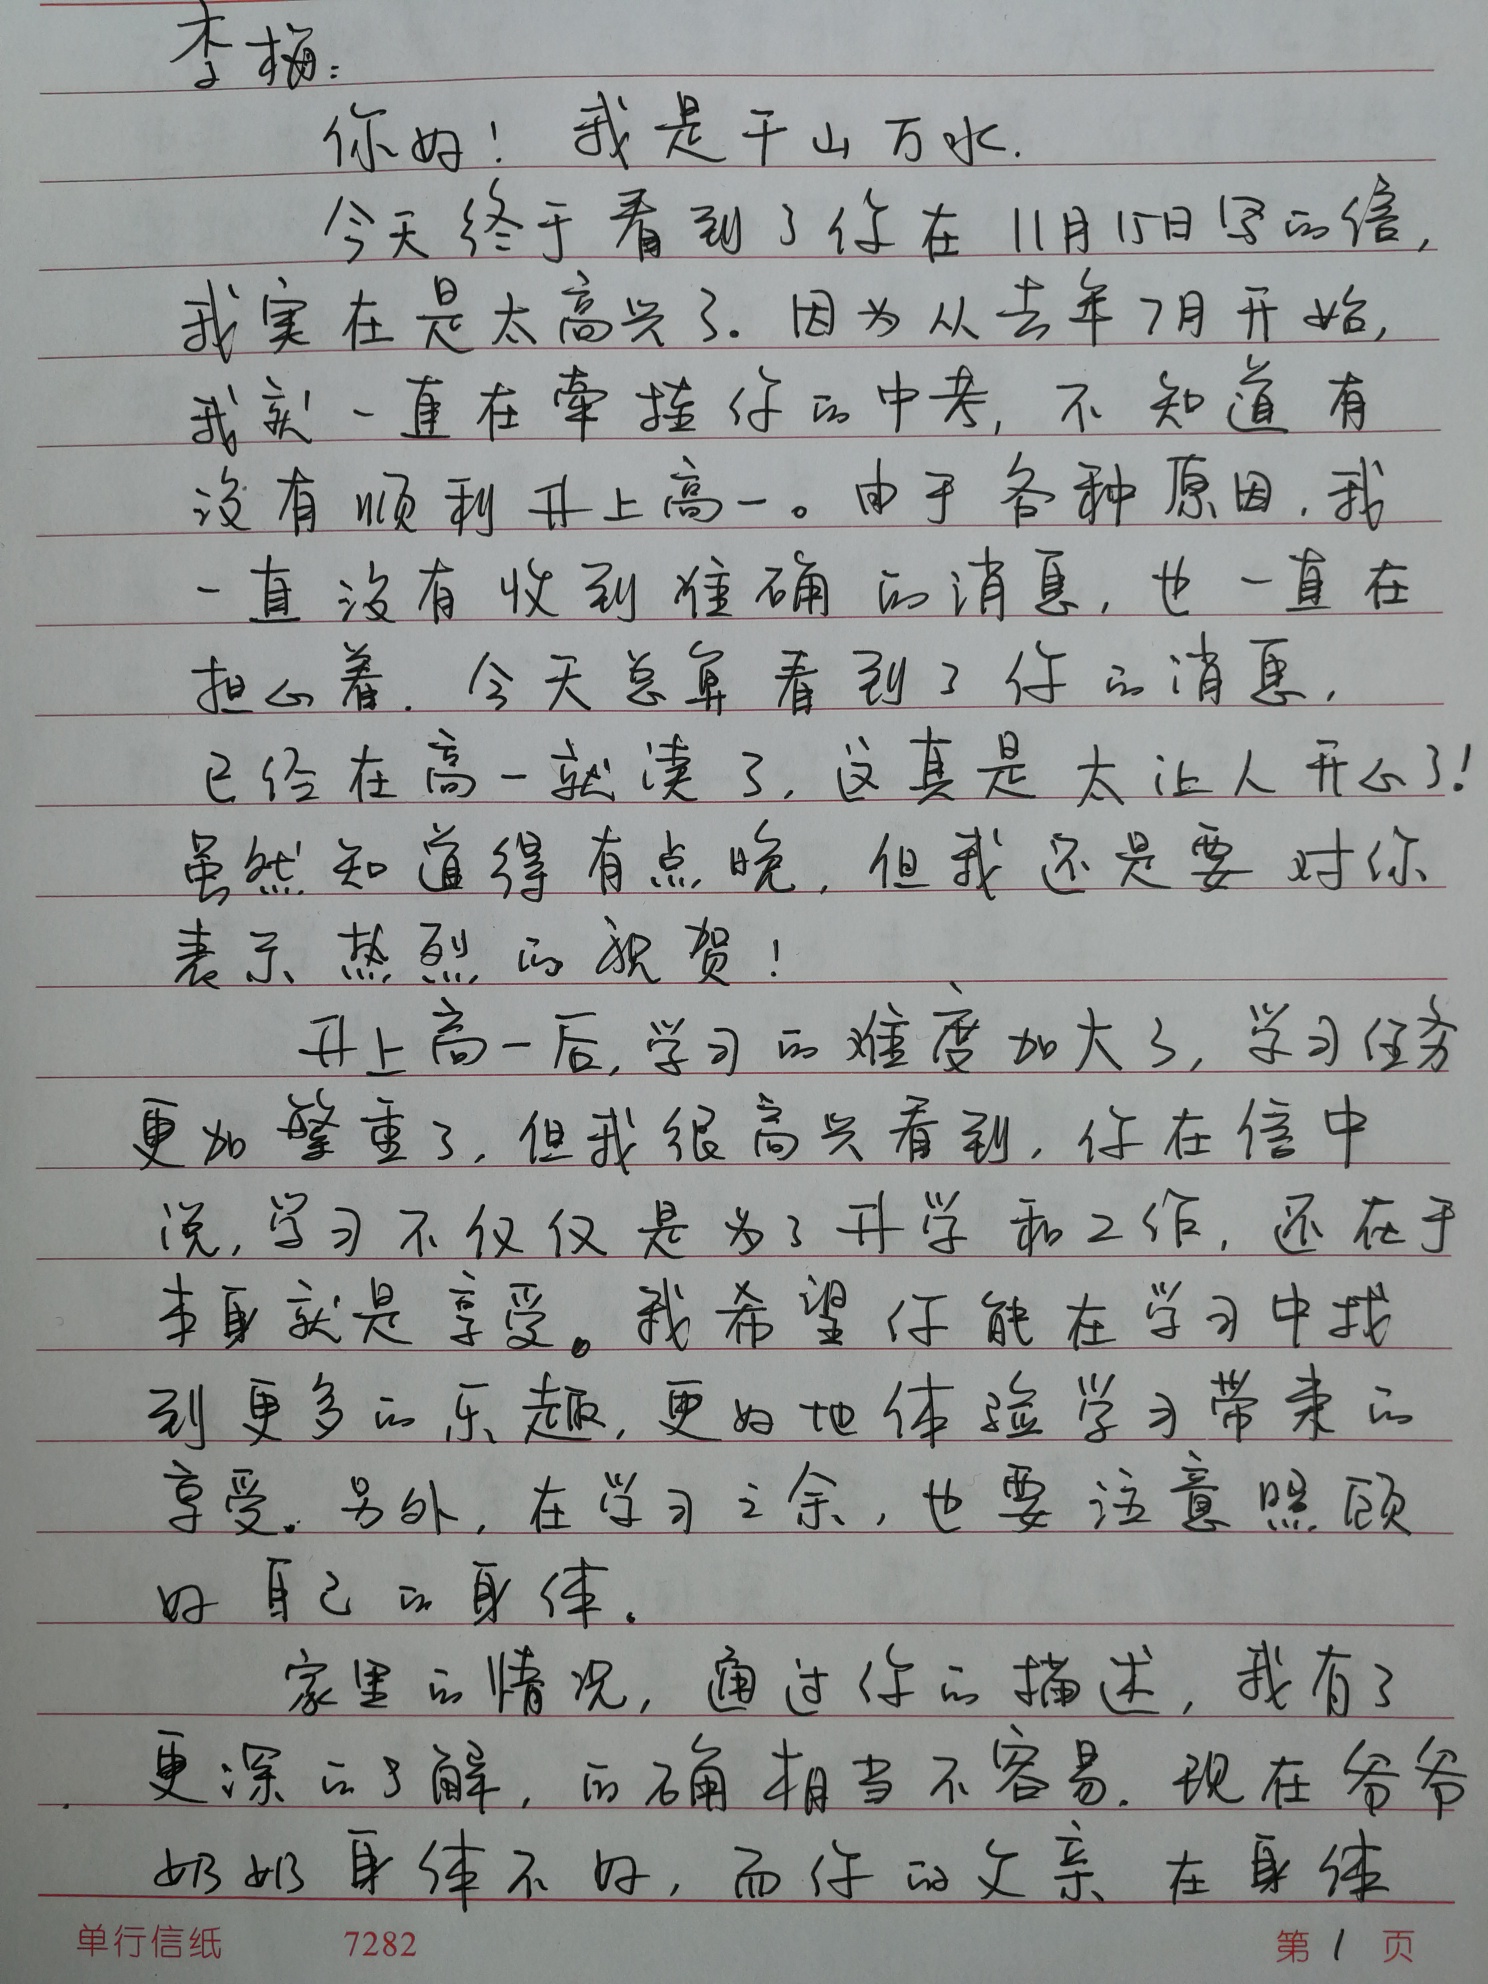 李梅：
你好！我是千山万水.
今天终于看到了你在11月15日写的信，
我实在是太高兴了.因为从去年7月开始，
我就一直在牵挂你的中考，不知道有
没有顺利升上高一。由于各种原因，我
一直没有收到准确的消息，也一直在
担心着.今天总算看到了你的消息，
已经在高一就读了，这真是太让人开心了！
虽然知道得有点晚，但我还是要对你
表示热烈的祝贺！
升上高一后，学习的难度加大了，学习任务
更加繁重了，但我很高兴看到，你在信中
说，学习不仅仅是为了升学和工作，还在于
本身就是享受。我希望你能在学习中找
到更多的乐趣，更好地体验学习带来的
享受。另外，在学习之余，也要注意照顾
好自己的身体.
家里的情况，通过你的描述，我有了
更深的了解，的确相当不容易.现在爷爷
奶奶身体不好，而你的父亲在身体
单行信纸 7282 第1页